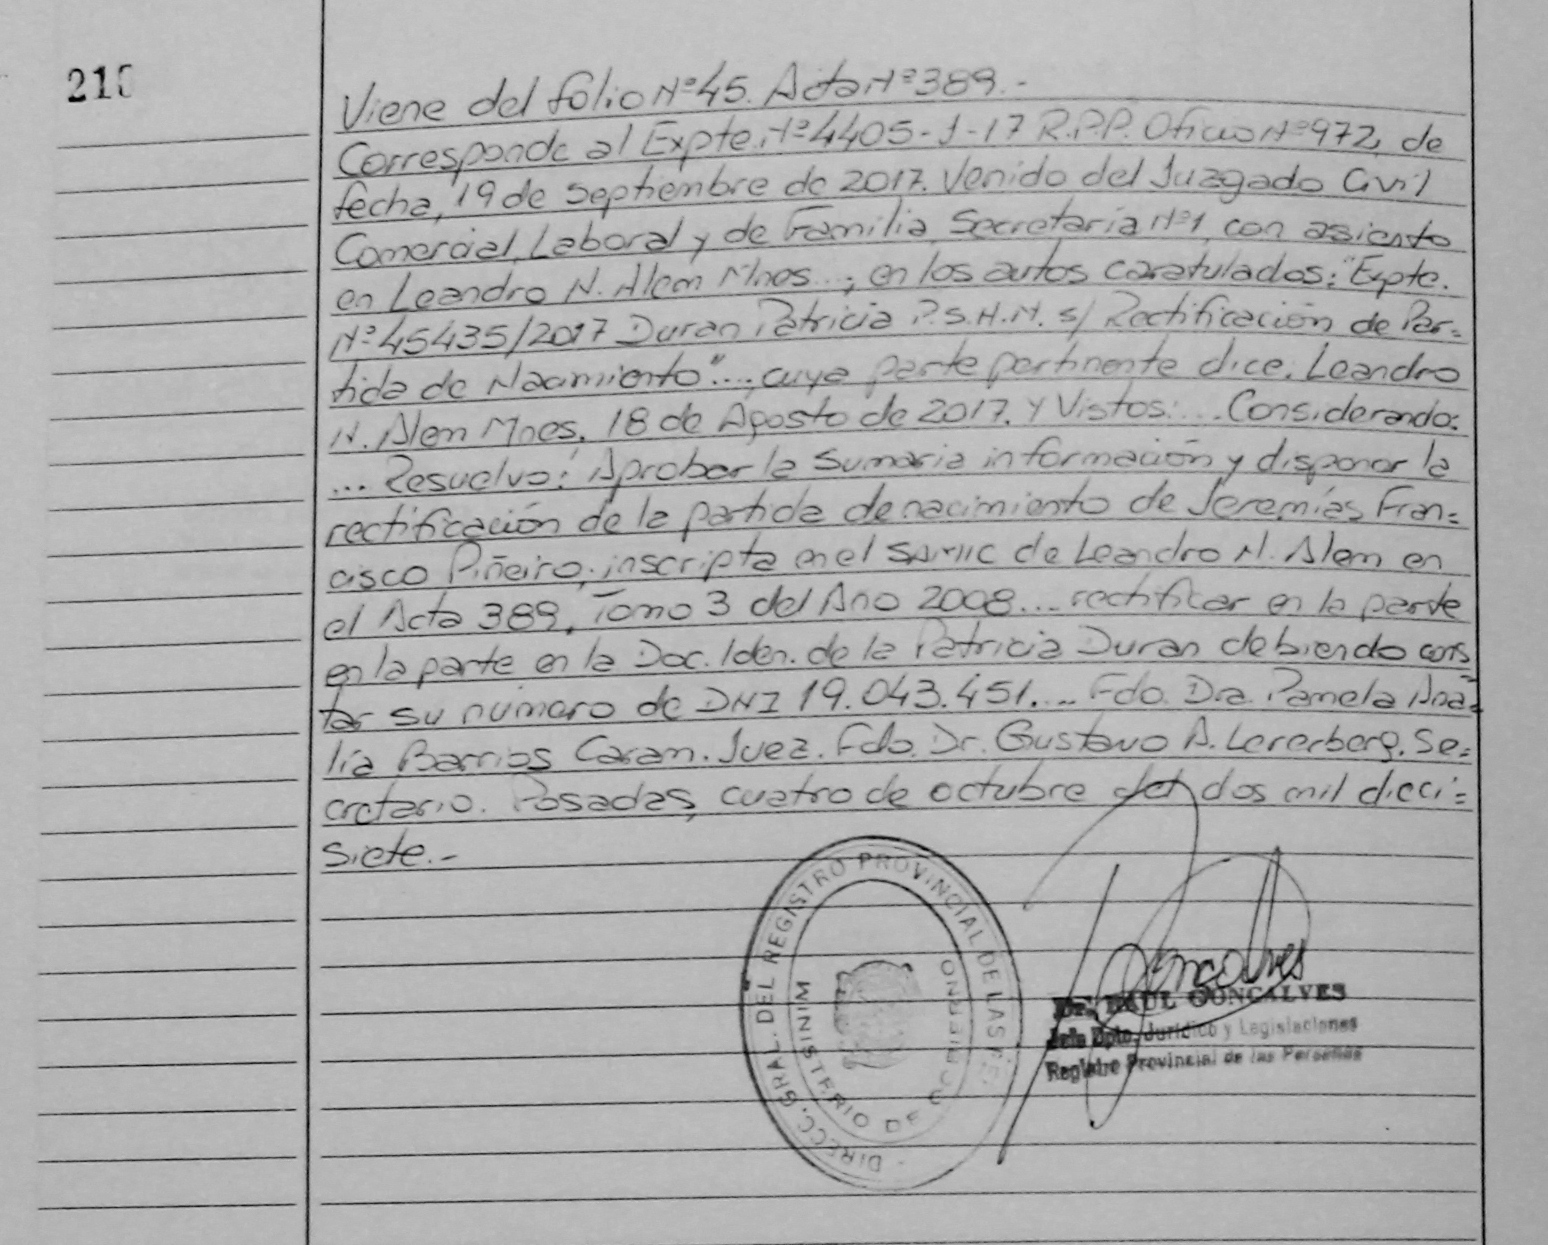 210
Viene del folio Nº 45. Acta Nº 389.-
Corresponde al Expte. Nº 4405-J-17 R.P.P. Oficio Nº 972, de
fecha, 19 de Septiembre de 2017. Venido del Juzgado Civil
Comercial, Laboral y de Familia Secretaría Nº1, con asiento
en Leandro N. Alem Mnes...; en los autos caratulados: "Expte.
Nº 45435/2017 Duran Patricia P.S.H.M. s/ Rectificación de Par=
tida de Nacimiento"..., cuya parte pertinente dice: Leandro
N. Alem Mnes, 18 de Agosto de 2017. Y Vistos:... Considerando:
... Resuelvo: Aprobar la Sumaria información y disponer la
rectificación de la partida de nacimiento de Jeremías Fran=
cisco Piñeiro, inscripta en el SAMIC de Leandro N. Alem en
el Acta 389, Tomo 3 del Año 2008... rectificar en la parte
en la parte en la Doc. Iden. de la Patricia Duran debiendo cons
tar su número de DNI 19.043.451.... Fdo. Dra. Pamela Ana=
lía Barrios Caram. Juez. Fdo. Dr. Gustavo A. Lererberg. Se=
cretario. Posadas, cuatro de octubre del dos mil dieci=
siete.-
DIRECC. GRAL. DEL REGISTRO PROVINCIAL DE LAS
MINISTERIO DE GOBIERNO
Goncalves
Dr. RAUL GONCALVES
Jefe Dpto. Jurídico y Legislaciones
Registro Provincial de las Personas